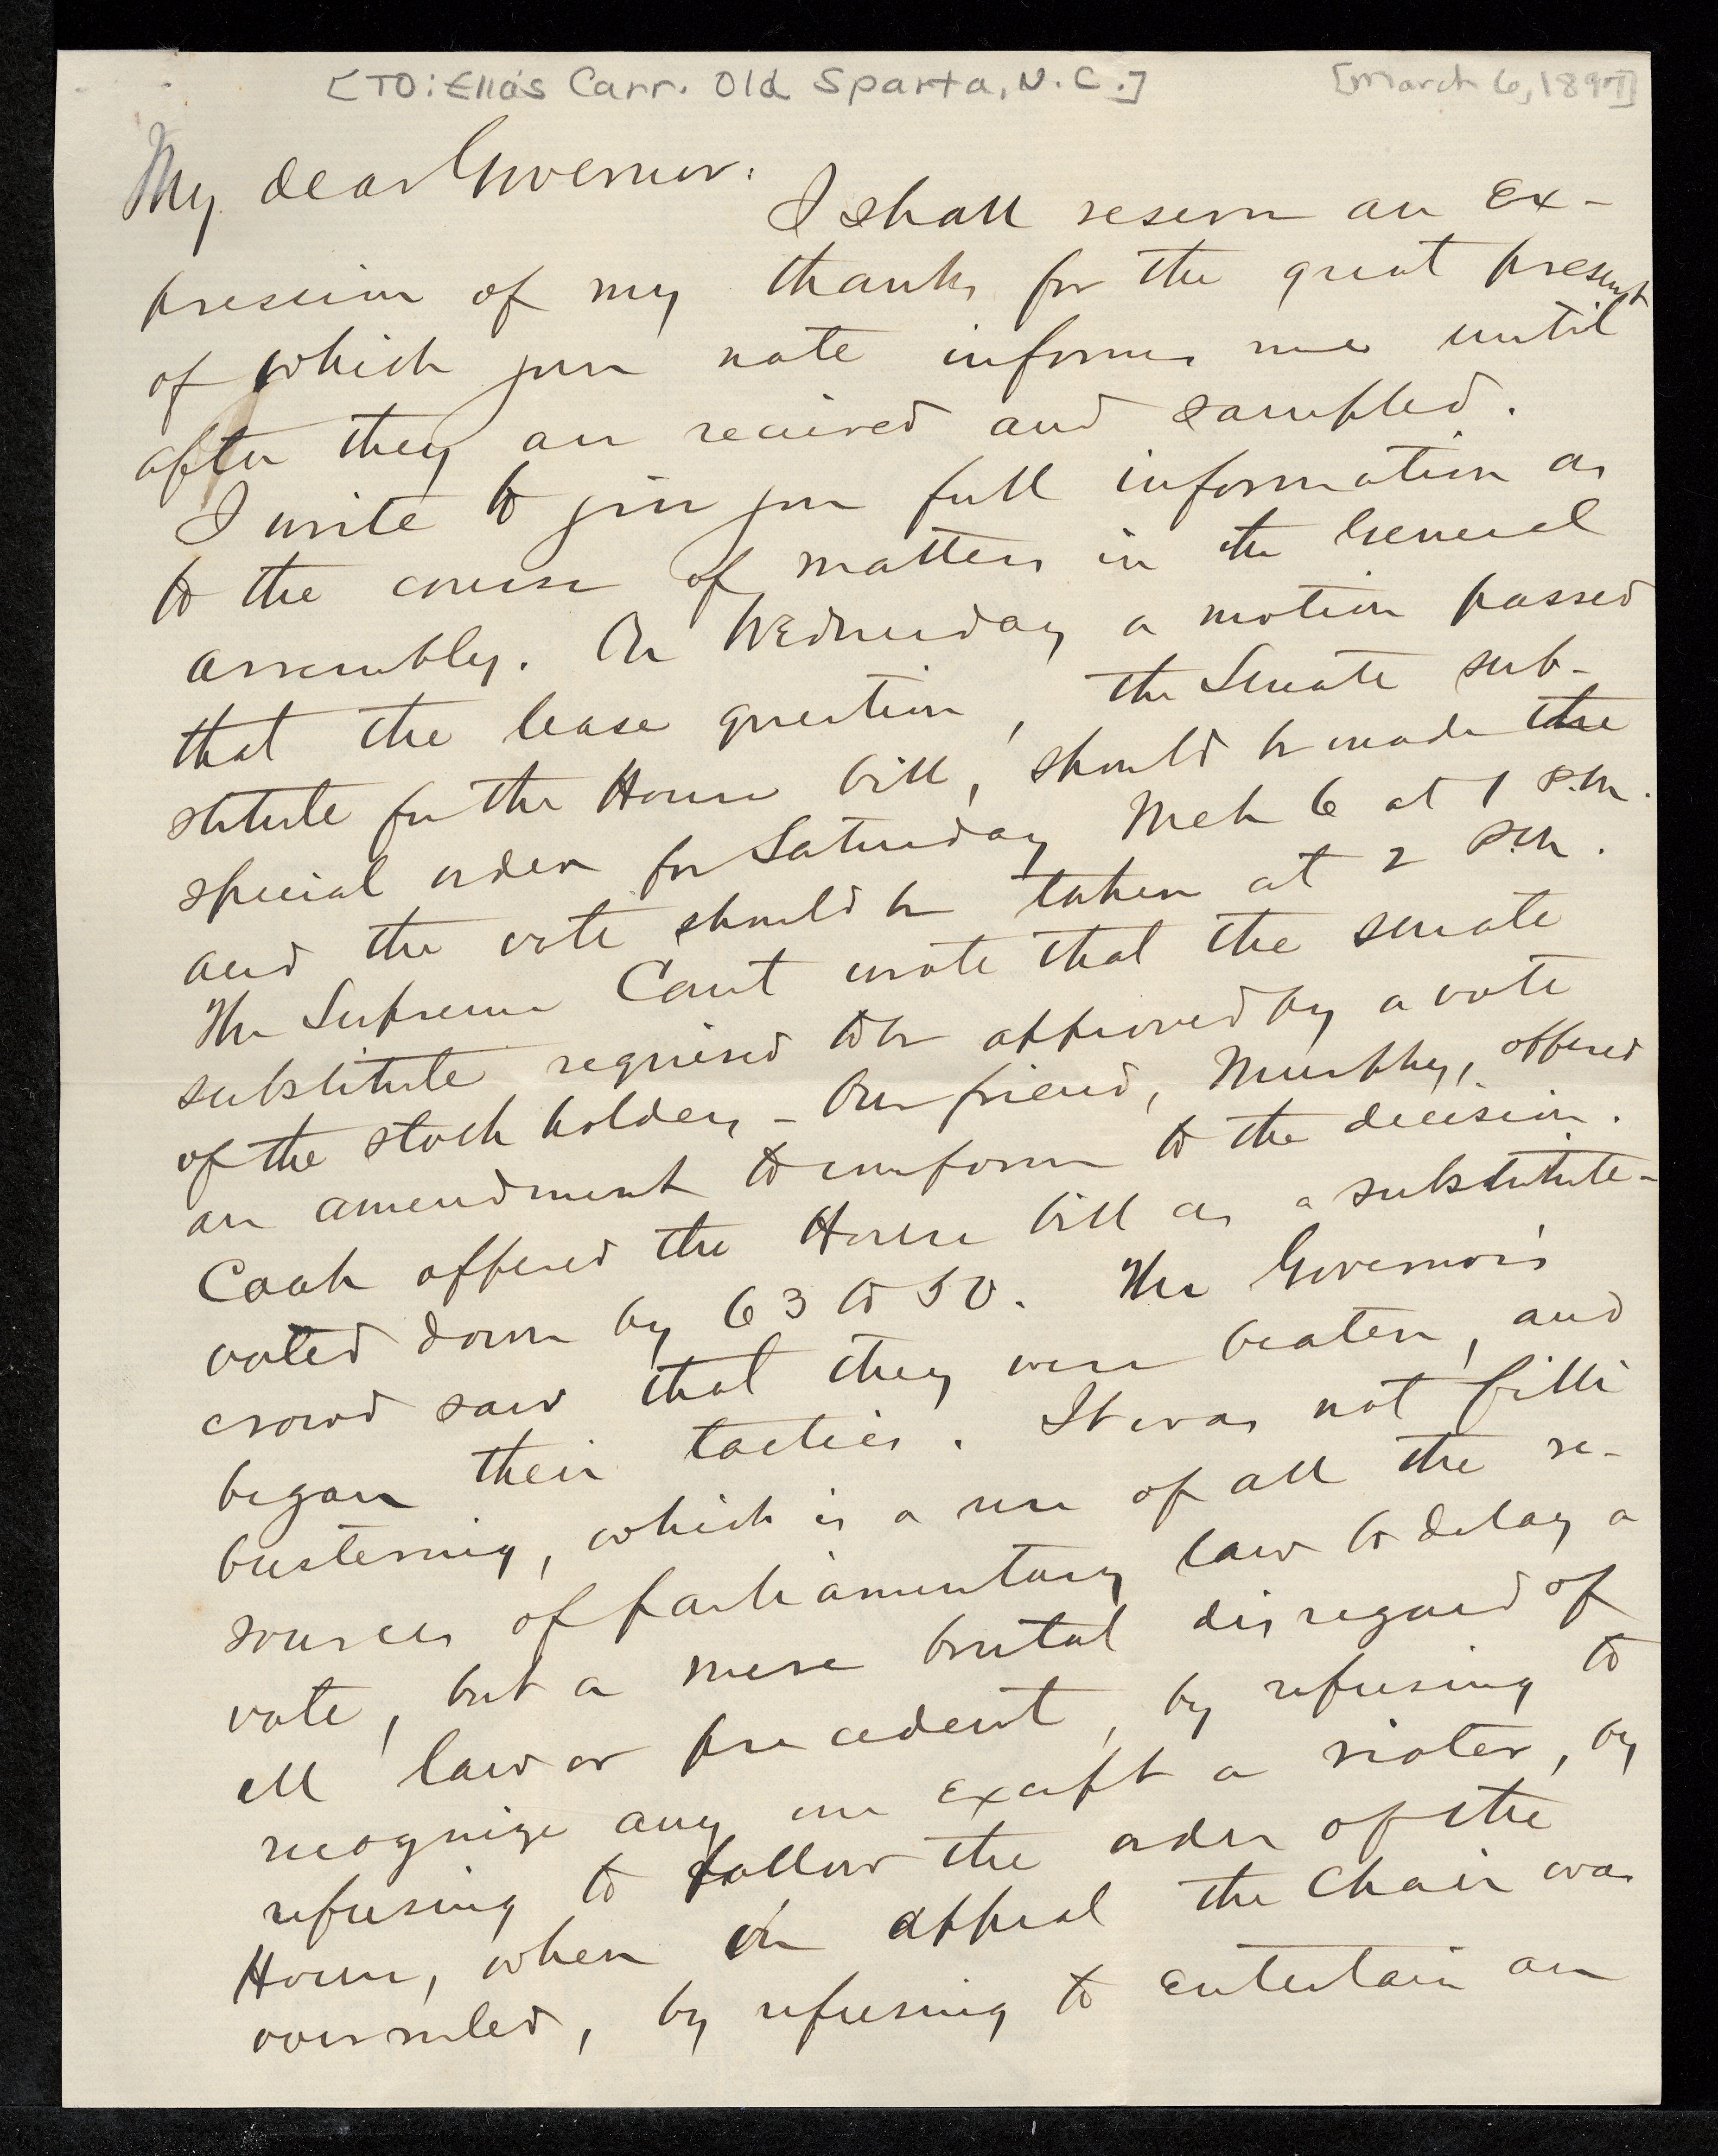 [TO: Elias Carr. Old Sparta, N.C.] [March 6, 1897]
My dear Governor:
I shall reserve an ex-
pression of my thanks for the great present
of which your note informs me until
after they are received and sampled.
I write to give you full information as
to the course of matters in the General
Assembly. On Wednesday a motion passed
that the lease question, the Senate sub-
stitute for the House bill, should be made the
special order for Saturday Mch 6 at 1 P.M.
and the vote should be taken at 2 P.M.
The Supreme Court wrote that the senate
substitute required to be approved by a vote
of the stock holders - Our friend, Murphy, offered
an amendment to conform to the decision.
Cook offered the House bill as a substitute -
voted down by 63 to 50. The Governor's
crowd saw that they were beaten, and
began their tactics. It was not filli
bustering, which is a use of all the re-
sources of parliamentary law to delay a
vote, but a mere brutal disregard of
all law or precedent, by refusing to
recognize any one except a rioter, by
refusing to follow the order of the
House, when on appeal the Chair was
overruled, by refusing to entertain an